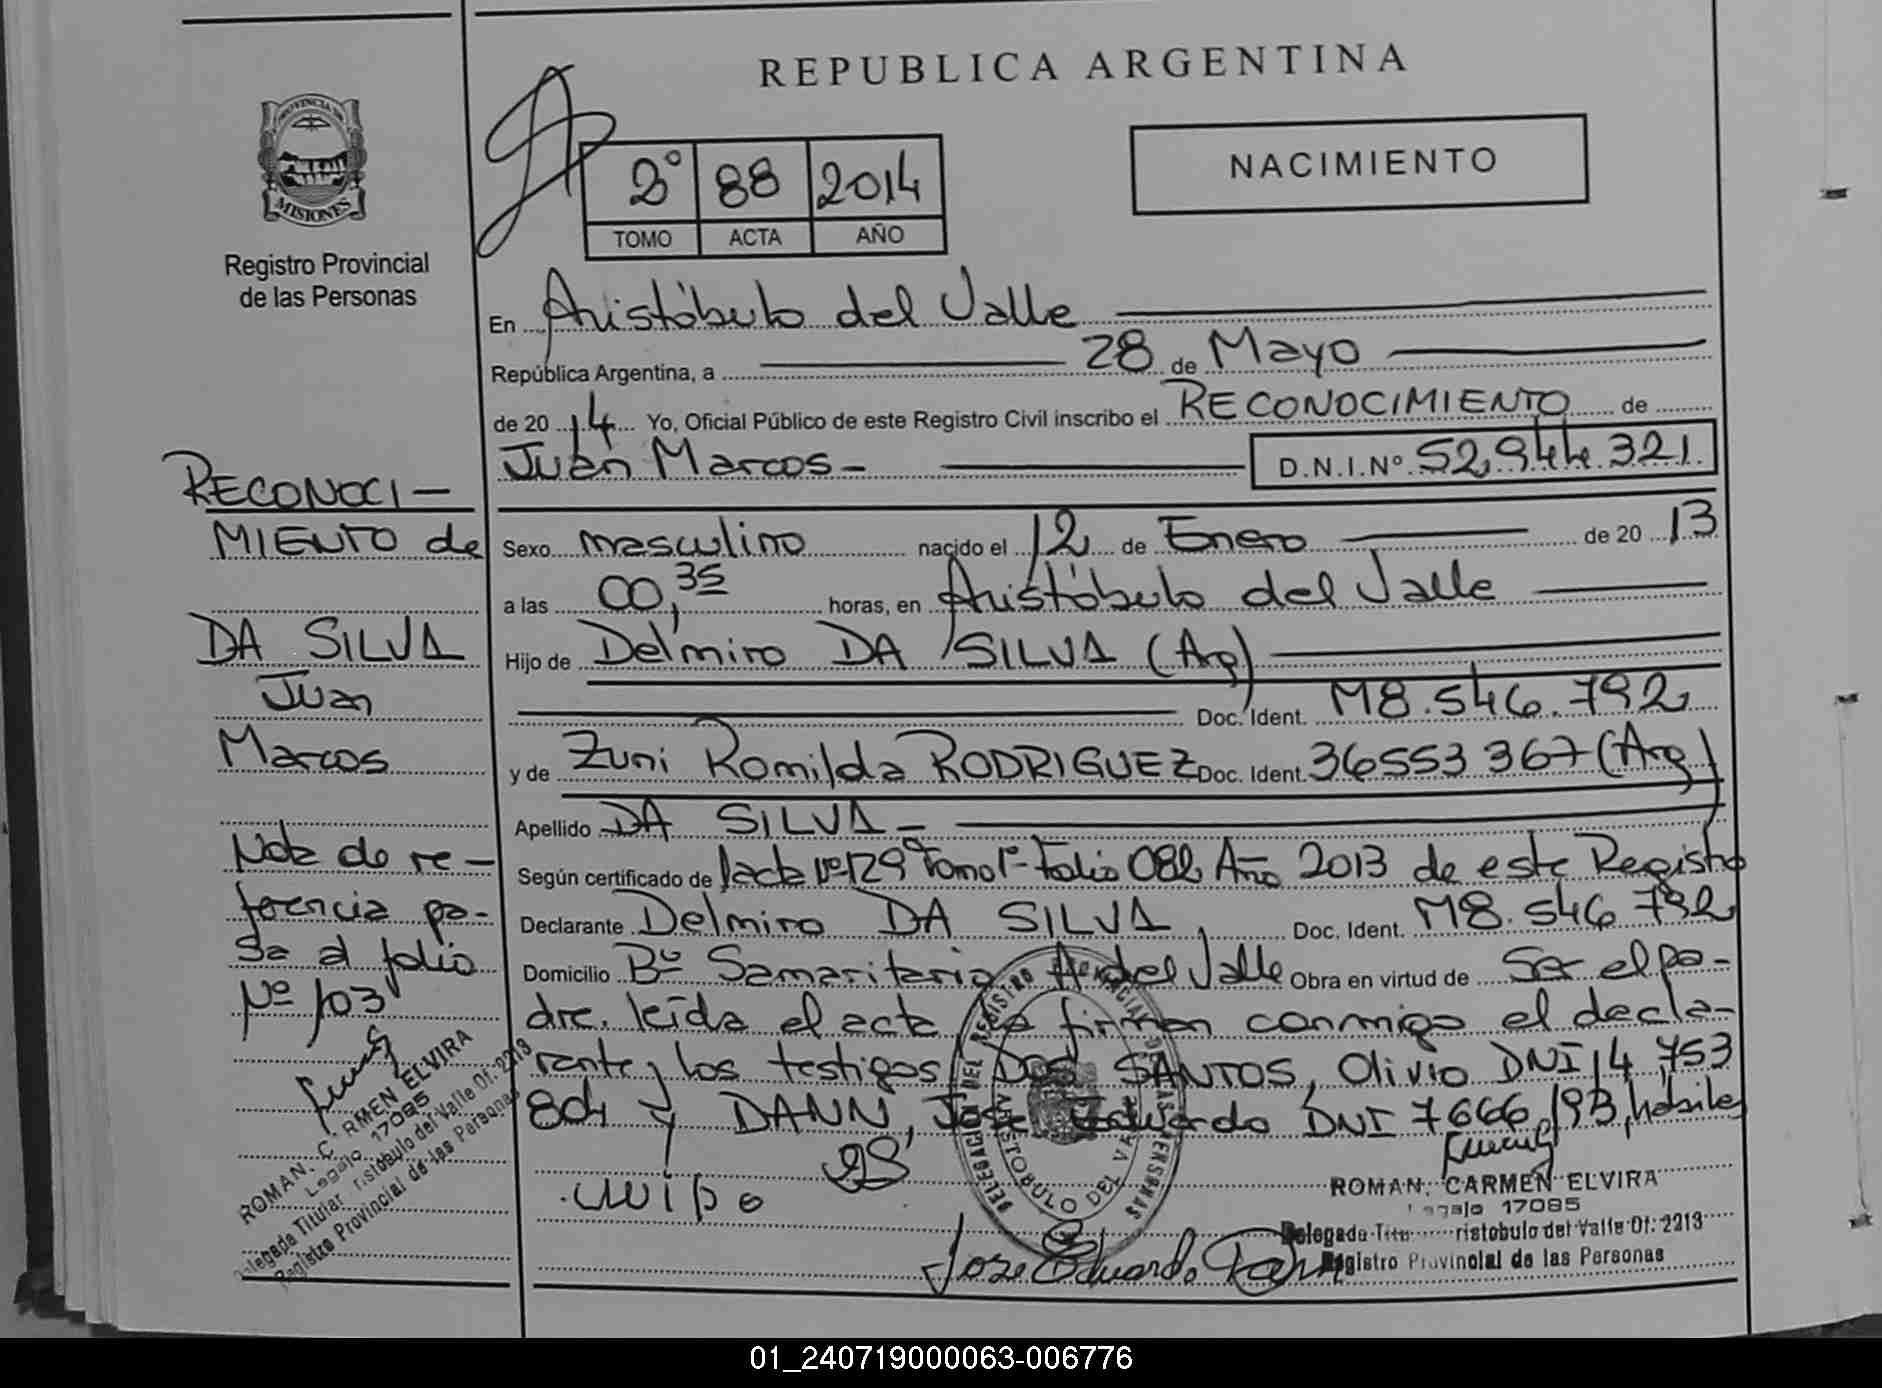 REPUBLICA ARGENTINA
PROVINCIA DE
MISIONES
Registro Provincial
de las Personas
2° 88 2014
TOMO ACTA AÑO
NACIMIENTO
En Aristóbulo del Valle
República Argentina, a 28 de Mayo
de 2014 Yo, Oficial Público de este Registro Civil inscribo el RECONOCIMIENTO de
Juan Marcos - D.N.I.Nº 52.944.321
Sexo masculino nacido el 12 de Enero de 2013
a las 00,35 horas, en Aristóbulo del Valle
Hijo de Delmiro DA SILVA (Arg)
Doc. Ident. M8.546.792
y de Zuni Romilda RODRIGUEZ Doc. Ident. 36553367 (Arg)
Apellido DA SILVA -
Según certificado de /acta Nº129 Tomo 1º Folio 082 Año 2013 de este Registro
Declarante Delmiro DA SILVA, Doc. Ident. M8.546.792
Domicilio Bº Samaritano A. del Valle Obra en virtud de Ser el pa-
dre. leída el acta la firman conmigo el decla-
rante y los testigos DOS SANTOS, Olivio DNI 14,753
804 y DANN, Jose Eduardo DNI 7666,193, hábiles
RECONOCI-
MIENTO de
DA SILVA
Juan
Marcos
Nota de re-
ferencia pa-
sa al folio
Nº 103
ROMAN, CARMEN ELVIRA
Legajo 17085
Delegada Titular ristobulo del Valle Of. 2213
Registro Provincial de las Personas
DELEGACION DEL REGISTRO PROVINCIAL DE LAS PERSONAS
ARISTOBULO DEL VALLE
ROMAN, CARMEN ELVIRA
Legajo 17085
Delegada Titu ristobulo del Valle Of. 2213
Registro Provincial de las Personas
Jose Eduardo Dann
01_240719000063-006776